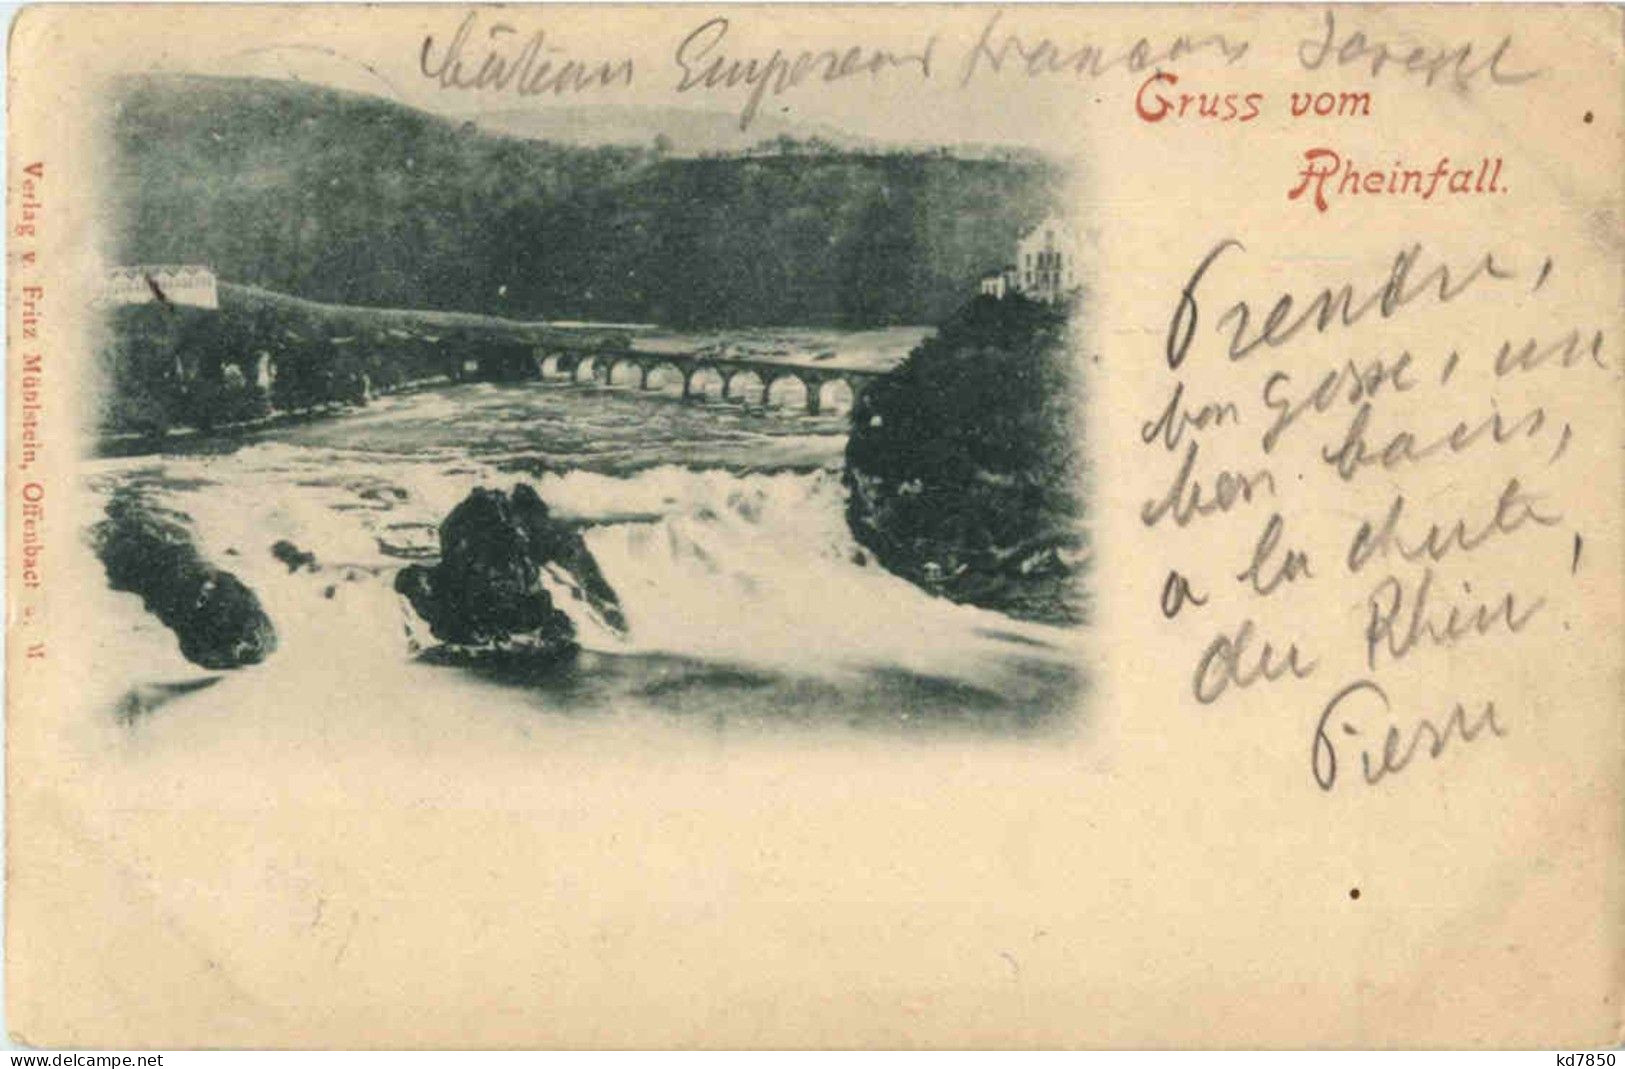 Empereur
Gruss vom
Rheinfall.
Prendre,
bon gosse, un
bon bain,
a la chute
du Rhin.
Pierre
Verlag v. Fritz Mühlstein, Offenbach a. M
www.delcampe.net
kd7850